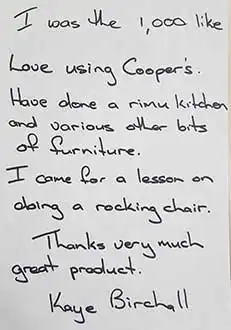 I was the 1,000 like
Love using Cooper's.
Have done a rimu kitchen
and various other bits
of furniture.
I came for a lesson on
doing a rocking chair.
Thanks very much
great product.
Kaye Birchall